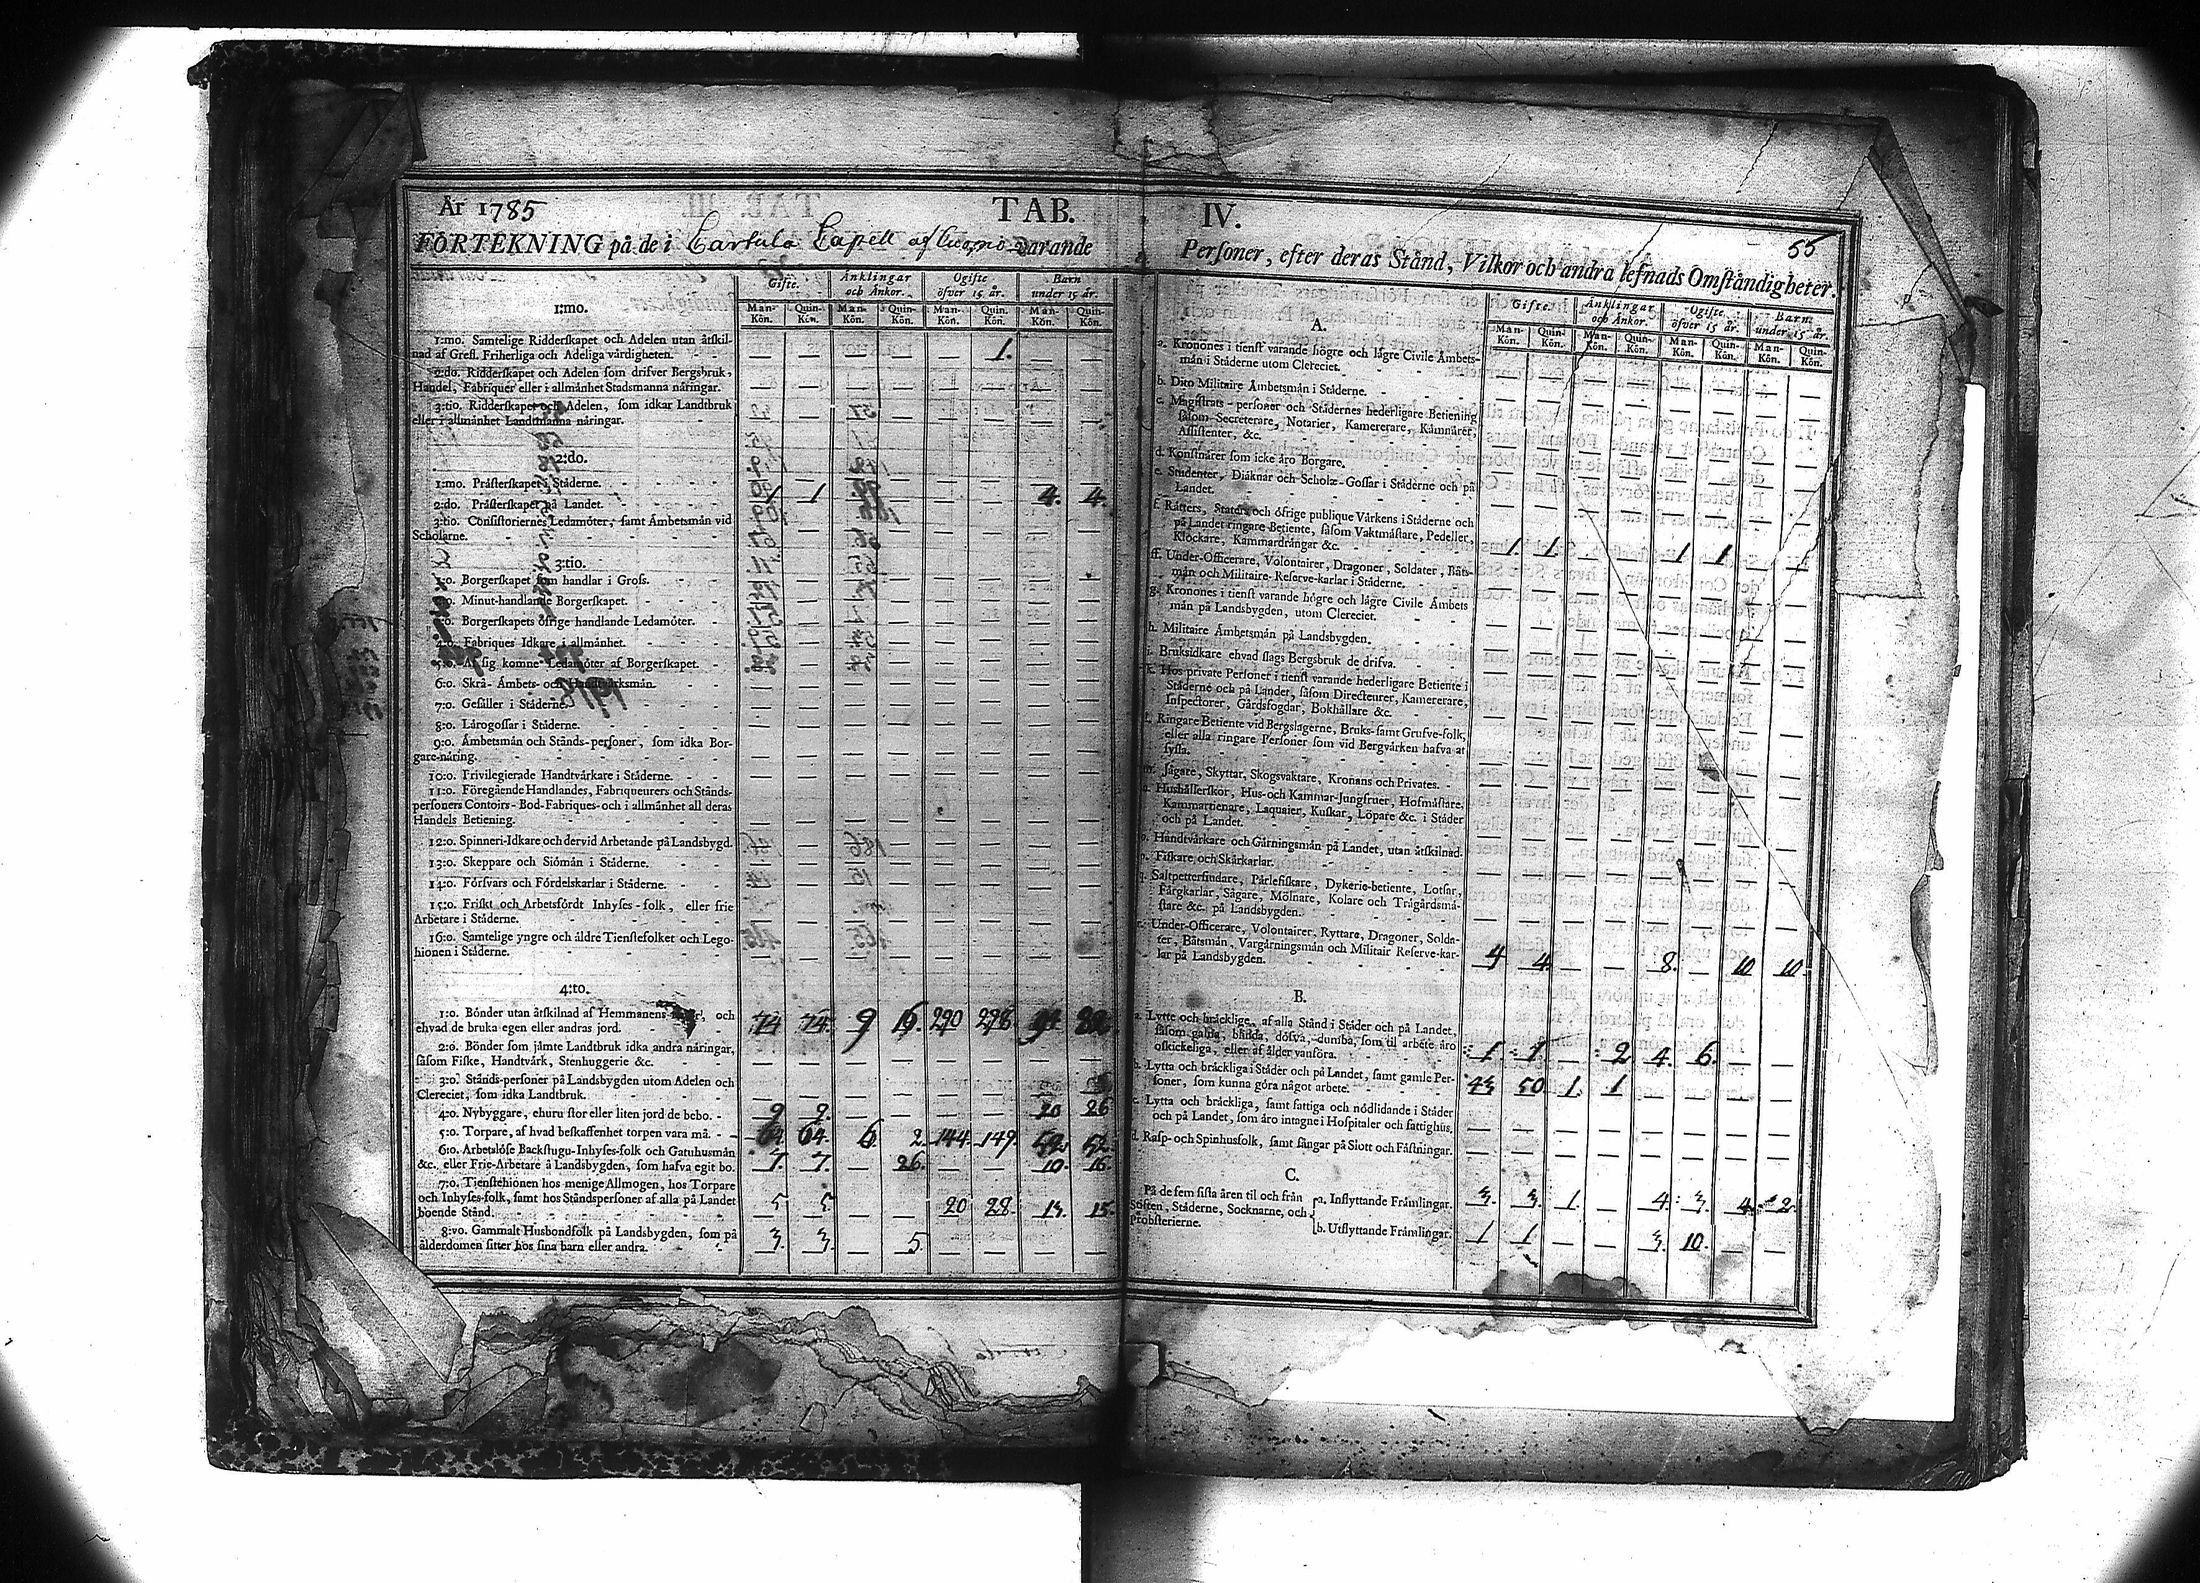 År 1785 TAB. IV.
55
FÖRTEKNING på de i Cartula Capell af varande Personer, efter deras Stånd, Vilkor och andra lefnads Omståndigheter.
Gifte. Änklingar och Änkor. Ogifte öfver 15 år. Barn under 15 år.
Man-Kön. Quin-Kön. Man-Kön. Quin-Kön. Man-Kön. Quin-Kön. Man-Kön. Quin-Kön.
1:mo.
1:mo. Samtelige Ridderskapet och Adelen utan åtskil-
nad af Grefl. Friherliga och Adeliga värdigheten. — — — — — 1. — —
2:do. Ridderskapet och Adelen som drifver Bergsbruk,
Handel, Fabriquer eller i allmånhet Stadsmanna näringar. — — — — — — — —
3:tio. Ridderskapet och Adelen, som idkar Landtbruk
eller i allmånhet Landtmanna näringar. — — — — — — — —
2:do.
1:mo. Prästerskapet i Städerne. — — — — — — — —
2:do. Prästerskapet på Landet. 1 1 — — — — 4. 4.
3:tio. Consistoriernes Ledamöter, samt Ämbetsmän vid
Scholarne. — — — — — — — —
3:tio.
1:o. Borgerskapet som handlar i Gross. — — — — — — — —
2:o. Minut-handlande Borgerskapet. — — — — — — — —
3:o. Borgerskapets öfrige handlande Ledamöter. — — — — — — — —
4:o. Fabriques Idkare i allmånhet. — — — — — — — —
5:o. Af sig komne Ledamöter af Borgerskapet. — — — — — — — —
6:o. Skrå- Ämbets- och Handtvärksmän. — — — — — — — —
7:o. Gesäller i Städerne. — — — — — — — —
8:o. Lärogossar i Städerne. — — — — — — — —
9:o. Ämbetsmän och Stånds-personer, som idka Bor-
gare-näring. — — — — — — — —
10:o. Privilegierade Handtvärkare i Städerne. — — — — — — — —
11:o. Föregående Handlandes, Fabriqueurers och Stånds-
personers Contoirs- Bod-Fabriques- och i allmånhet all deras
Handels Betiening. — — — — — — — —
12:o. Spinneri-Idkare och dervid Arbetande på Landsbygd. — — — — — — — —
13:o. Skeppare och Siömän i Städerne. — — — — — — — —
14:o. Försvars och Fördelskarlar i Städerne. — — — — — — — —
15:o. Friskt och Arbetsfördt Inhyses-folk, eller frie
Arbetare i Städerne. — — — — — — — —
16:o. Samtelige yngre och äldre Tienstefolket och Lego-
hionen i Städerne. — — — — — — — —
4:to.
1:o. Bönder utan åtskilnad af Hemmanens och
ehvad de bruka egen eller andras jord. 74 74. 9 290 298
2:o. Bönder som jämte Landtbruk idka andra näringar,
såsom Fiske, Handtvärk, Stenhuggerie &c. — — — — — — — —
3:o. Stånds-personer på Landsbygden utom Adelen och
Clereciet, som idka Landtbruk. — — — — — — — —
4:o. Nybyggare, ehuru stor eller liten jord de bebo. 9 9. — — — — 20 26
5:o. Torpare, af hvad beskaffenhet torpen vara må. 64. 64. 6 2. 144. 149. 52. 52.
6:o. Arbetslöse Backstugu-Inhyses-folk och Gatuhusmän
&c. eller Frie-Arbetare å Landsbygden, som hafva egit bo. 7. 7. — 26. — — 10. 16.
7:o. Tienstehionen hos menige Allmogen, hos Torpare
och Inhyses-folk, samt hos Ståndspersoner af alla på Landet
boende Stånd. 5 5. — — 20 28. 13. 15.
8:vo. Gammalt Husbondfolk på Landsbygden, som på
ålderdomen sitter hos sina barn eller andra. 3. 3. — 5. — — — —
Gifte. Änklingar och Änkor. Ogifte öfver 15 år. Barn under 15 år.
Man-Kön. Quin-Kön. Man-Kön. Quin-Kön. Man-Kön. Quin-Kön. Man-Kön. Quin-Kön.
A.
a. Kronones i tienst varande högre och lägre Civile Ämbets-
män i Städerne utom Clereciet. — — — — — — — —
b. Dito Militaire Ämbetsmän i Städerne. — — — — — — — —
c. Magistrats-personer och Städernes hederligare Betiening
såsom Secreterare, Notarier, Kamererare, Kämnärer,
Assistenter, &c. — — — — — — — —
d. Konstnärer som icke äro Borgare. — — — — — — — —
e. Studenter, Diäknar och Scholæ-Gossar i Städerne och på
Landet. — — — — — — — —
f. Rätters, Staters och öfrige publique Värkens i Städerne och
på Landet ringare Betiente, såsom Vaktmästare, Pedeller,
Klockare, Kammardrängar &c. 1. 1. — — 1 1 — —
ff. Under-Officerare, Volontairer, Dragoner, Soldater, Båts-
män och Militaire-Reserve-karlar i Städerne. — — — — — — — —
g. Kronones i tienst varande högre och lägre Civile Ämbets
män på Landsbygden, utom Clereciet. — — — — — — — —
h. Militaire Ämbetsmän på Landsbygden. — — — — — — — —
i. Bruksidkare ehvad slags Bergsbruk de drifva. — — — — — — — —
k. Hos private Personer i tienst varande hederligare Betiente i
Städerne och på Landet, såsom Directeurer, Kamererare,
Inspectorer, Gårdsfogdar, Bokhållare &c. — — — — — — — —
l. Ringare Betiente vid Bergslagerne, Bruks- samt Grufve-folk,
eller alla ringare Personer som vid Bergvärken hafva at
syssla. — — — — — — — —
m. Jägare, Skyttar, Skogsvaktare, Kronans och Privates. — — — — — — — —
n. Hushållerskor, Hus- och Kammar-Jungfruer, Hofmästare,
Kammartienare, Laquaier, Kuskar, Löpare &c. i Städer
och på Landet. — — — — — — — —
o. Handtvärkare och Gärningsmän på Landet, utan åtskilnad. — — — — — — — —
p. Fiskare och Skärkarlar. — — — — — — — —
q. Saltpettersiudare, Pärlefiskare, Dykerie-betiente, Lotsar,
Färgkarlar, Sågare, Mölnare, Kolare och Trägårdsmä-
stare &c. på Landsbygden. — — — — — — — —
r. Under-Officerare, Volontairer, Ryttare, Dragoner, Solda-
ter, Båtsmän, Vargärningsmän och Militair Reserve-kar-
lar på Landsbygden. 4 4 — — 8. — 10 10.
B.
a. Lytte och bräcklige, af alla Stånd i Städer och på Landet,
såsom galna, blinda, döfva, dumba, som til arbete äro
oskickeliga, eller af ålder vanföra. 1. 1. — 2 4. 6. — —
b. Lytta och bräckliga i Städer och på Landet, samt gamle Per-
soner, som kunna göra något arbete. 43 50 1. 1 — — — —
c. Lytta och bräckliga, samt fattiga och nödlidande i Städer
och på Landet, som äro intagne i Hospitaler och fattighus. — — — — — — — —
d. Rasp- och Spinhusfolk, samt fångar på Slott och Fästningar. — — — — — — — —
C.
På de fem sista åren til och från
Stiften, Städerne, Socknarne, och
Probsterierne.
a. Inflyttande Främlingar. 3. 3. 1. — 4. 3. 4. 2.
b. Utflyttande Främlingar. 1 1 — — 3. 10. — —